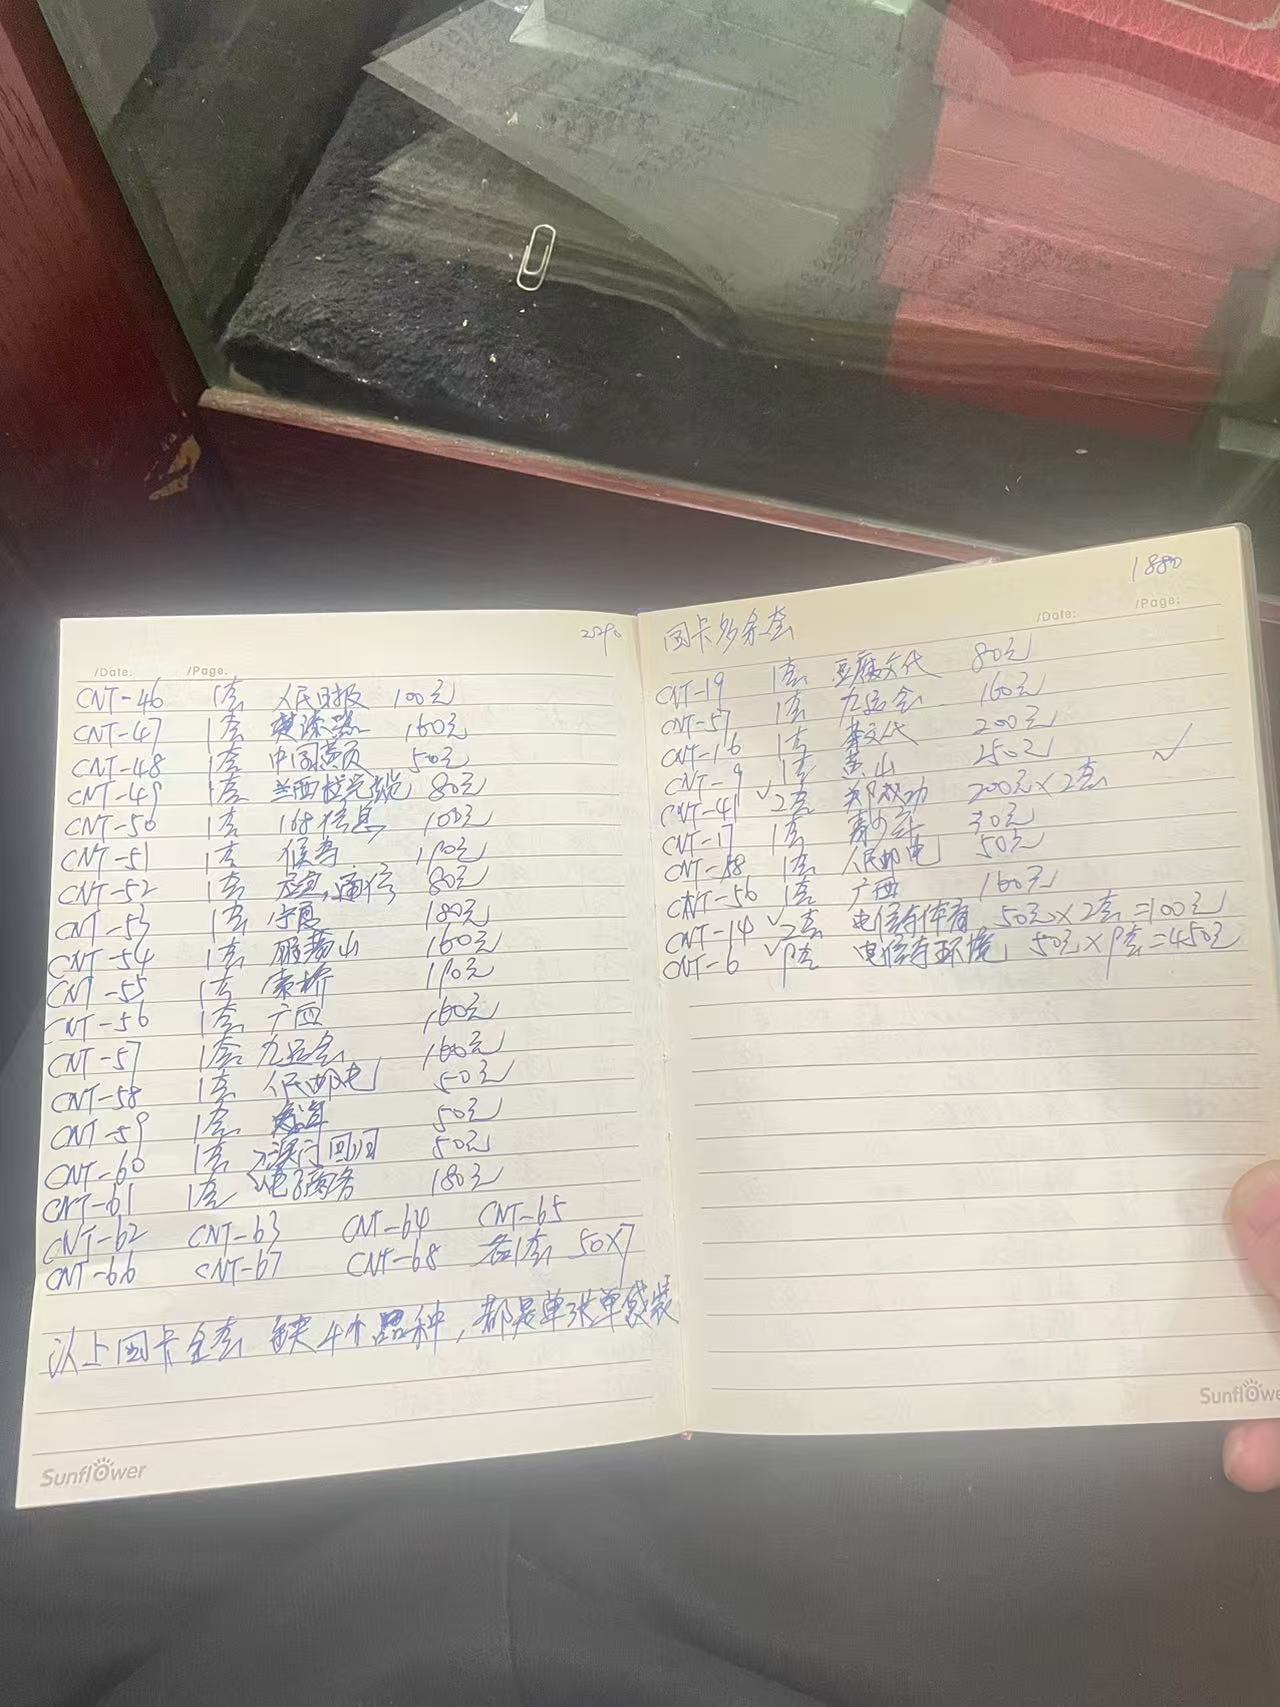 /Date: /Page:
CNT-46 1套 人民日报 100元
CNT-47 1套 漆器 160元
CNT-48 1套 中国黄页 50元
CNT-49 1套 兰西拉光缆 80元
CNT-50 1套 168信息 100元
CNT-51 1套 候鸟 190元
CNT-52 1套 通信 80元
CNT-53 1套 宁夏 180元
CNT-54 1套 雁荡山 160元
CNT-55 1套 桥 190元
CNT-56 1套 广西 160元
CNT-57 1套 九运会 160元
CNT-58 1套 人民邮电 50元
CNT-59 1套 50元
CNT-60 1套 澳门回归 50元
CNT-61 1套 电子商务 180元
CNT-62 CNT-63 CNT-64 CNT-65
CNT-66 CNT-67 CNT-68 各1套 50×7
以上国卡全套 缺4个品种，都是单张单袋装
Sunflower
1880
/Date: /Page:
国卡多余套
CNT-19 1套 豆腐文化 80元
CNT-57 1套 九运会 160元
CNT-16 1套 茶文化 200元
CNT-9 1套 黄山 250元
CNT-41 2套 郑成功 200元×2套
CNT-17 1套 青少年 30元
CNT-58 1套 人民邮电 50元
CNT-56 1套 广西 160元
CNT-14 2套 电信与体育 50元×2套=100元
CNT-6 9套 电信与环境 50元×9套=450元
Sunflowe